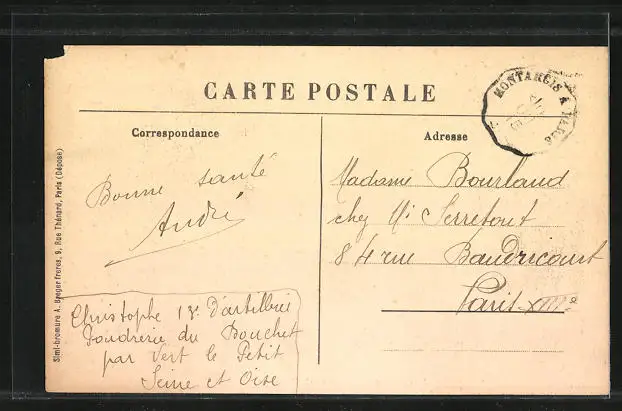 CARTE POSTALE
MONTARGIS A PARIS
Correspondance
Adresse
Bonne santé
André
Christophe 13e d'artillerie
Poudrerie du Bouchet
par Vert le Petit
Seine et Oise
Madame Bourlaud
chez Mr Serretout
84 rue Baudricourt
Paris XIIIe
Simi-bromure A. Breger frères, 9, Rue Thénard, Paris (Déposé)